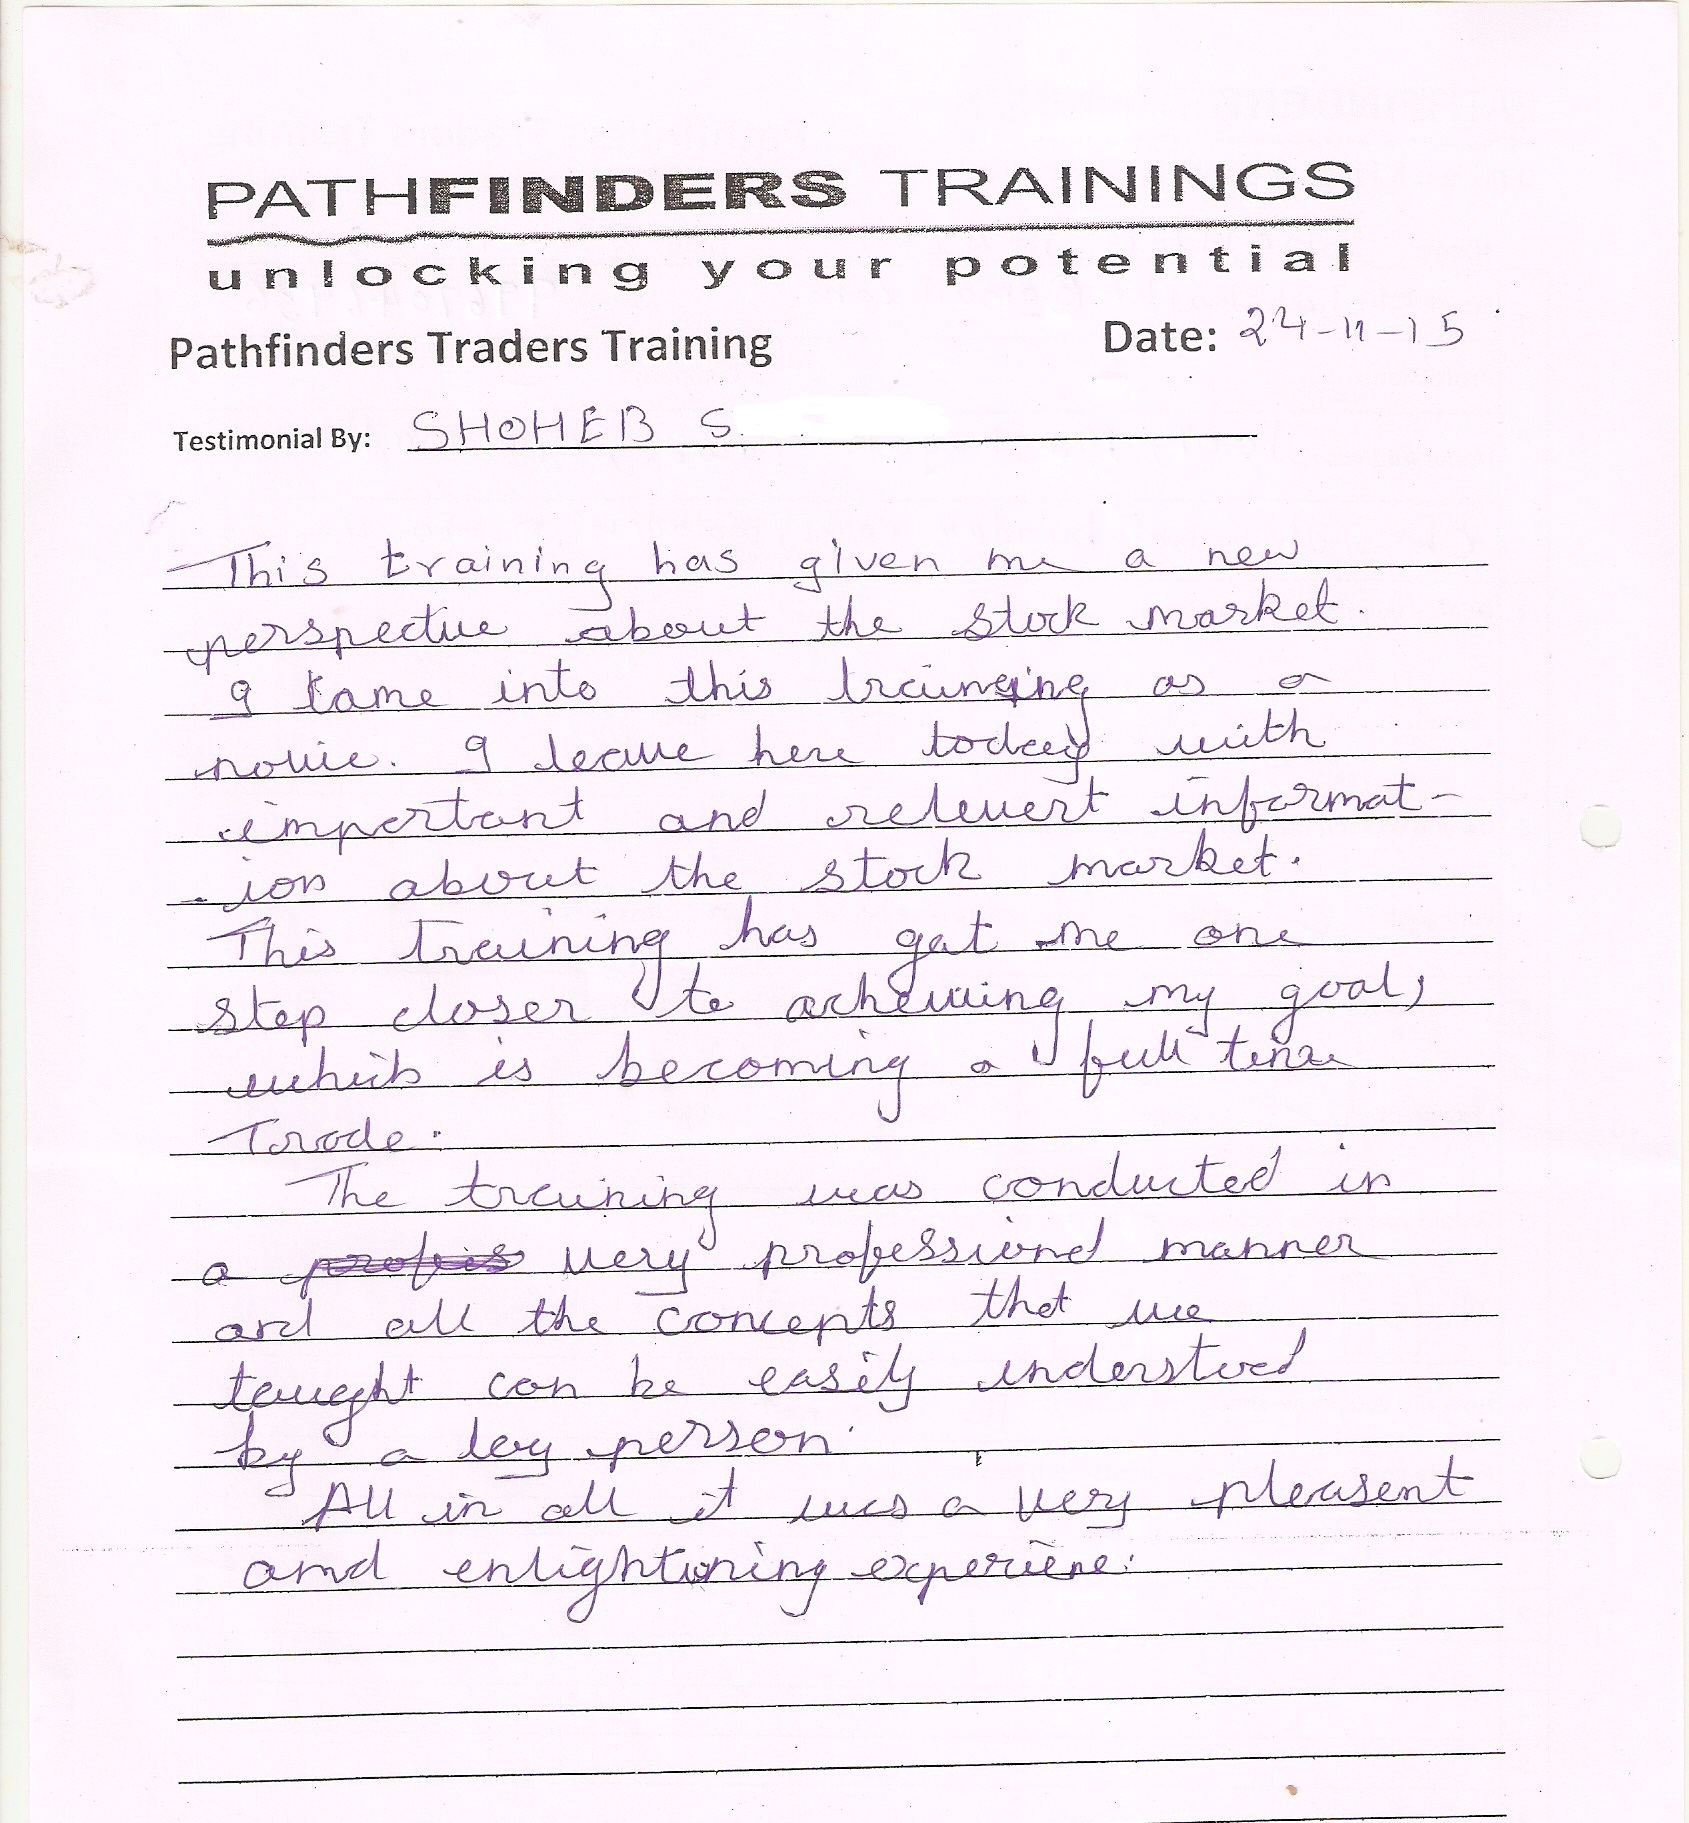 PATHFINDERS TRAININGS
unlocking your potential
Pathfinders Traders Training Date: 24-11-15
Testimonial By: SHOHEB S.
This training has given me a new
perspective about the stock market.
I came into this training as a
novice. I leave here today with
important and relevent informat-
-ion about the stock market.
This training has got me one
step closer to acheiving my goal,
which is becoming a full time
Trade.
The training was conducted in
a very professional manner
and all the concepts that we
taught can be easily understood
by a lay person.
All in all it was a very pleasent
and enlightining experiene.